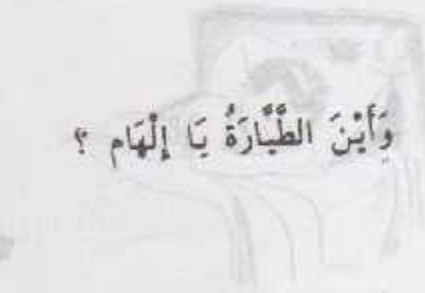 وَأَيْنَ الطَّيَّارَةُ يَا إِلْهَام ؟